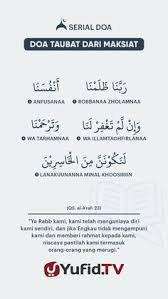 SERIAL DOA
DOA TAUBAT DARI MAKSIAT
رَبَّنَا ظَلَمْنَا أَنْفُسَنَا
❶ ROBBANAA ZHOLAMNAA ❷ ANFUSANAA
وَإِنْ لَمْ تَغْفِرْ لَنَا وَتَرْحَمْنَا
❸ WA ILLAMTAGHFIRLANAA ❹ WA TARHAMNAA
لَنَكُونَنَّ مِنَ الْخَاسِرِيْنَ
❺ LANAKUUNANNA MINAL KHOOSIRIIN
"Ya Rabb kami, kami telah menganiaya diri
kami sendiri, dan jika Engkau tidak mengampuni
kami dan memberi rahmat kepada kami,
niscaya pastilah kami termasuk
orang-orang yang merugi."
YUFID.TV